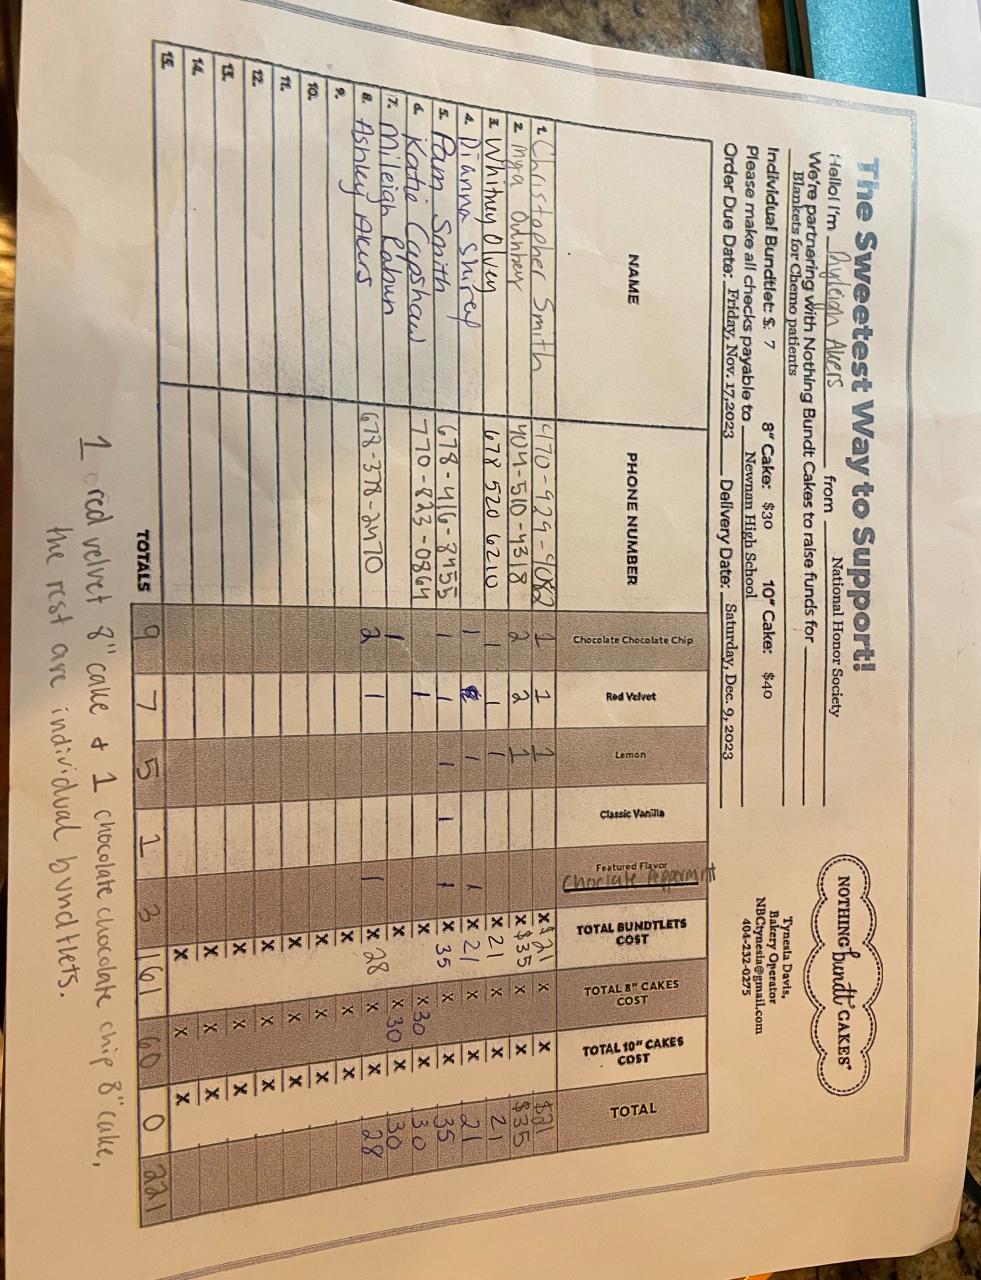 The Sweetest Way to Support!
Hello! I'm Ayleigh Akers from National Honor Society
We're partnering with Nothing Bundt Cakes to raise funds for
Blankets for Chemo patients
Individual Bundtlet: $: 7 8" Cake: $30 10" Cake: $40
Please make all checks payable to Newnan High School
Order Due Date: Friday, Nov. 17,2023 Delivery Date: Saturday, Dec. 9, 2023
NOTHING bundt CAKES®
Tynesia Davis,
Bakery Operator
NBCtynesia@gmail.com
404-232-0275
NAME PHONE NUMBER Chocolate Chocolate Chip Red Velvet Lemon Classic Vanilla Featured Flavor Choclate Peppermint TOTAL BUNDTLETS COST TOTAL 8" CAKES COST TOTAL 10" CAKES COST TOTAL
1. Christopher Smith 470-929-9082 1 1 1 X $21 X X $21
2. Mya 404-510-4318 2 2 1 X $35 X X $35
3. Whitney Olvey 678 520 6210 1 1 1 X 21 X X 21
4. Dianna Shirey 1 1 1 X 21 X X 21
5. Pam Smith 678-416-8455 1 1 1 1 1 X 35 X X 35
6. Katie Capshaw 770-823-0864 1 X X 30 X 30
7. Mileigh Rabun 1 X X 30 X 30
8. Ashley Akers 678-378-2470 2 1 1 X 28 X X 28
9. X X X
10. X X X
11. X X X
12. X X X
13. X X X
14. X X X
15. X X X
TOTALS 9 7 5 1 3 161 60 0 221
1 red velvet 8" cake & 1 chocolate chocolate chip 8" cake,
the rest are individual bundtlets.